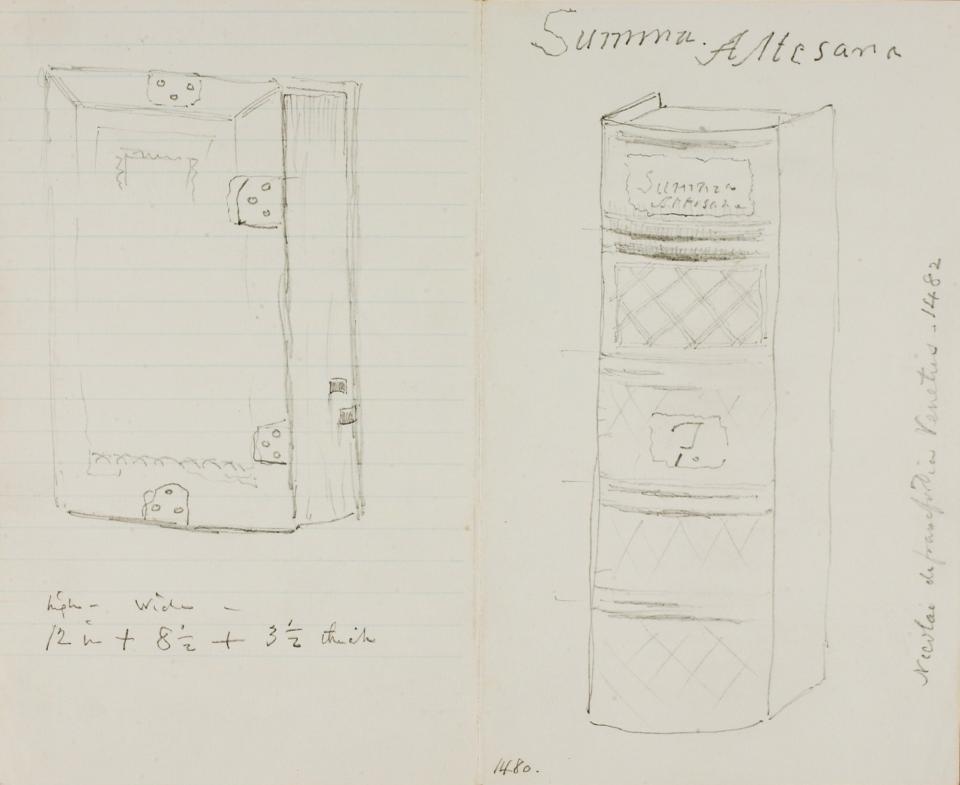 high - wide -
12 in + 8½ + 3½ thick
Summa. Altesana
Summa
Altesana
I
1.
Nicolai de francfordia Venetiis - 1482
1480.